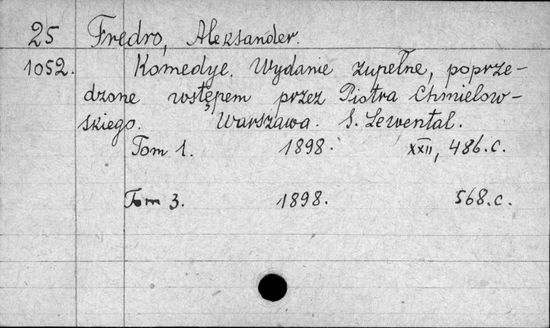 25 Fredro, Aleksander.
1052. Komedye. Wydanie zupełne, poprze-
dzone wstępem przez Piotra Chmielow-
skiego. Warszawa. S. Lewental.
Tom 1. 1898. XXII, 486.c.
Tom 3. 1898. 568.c.